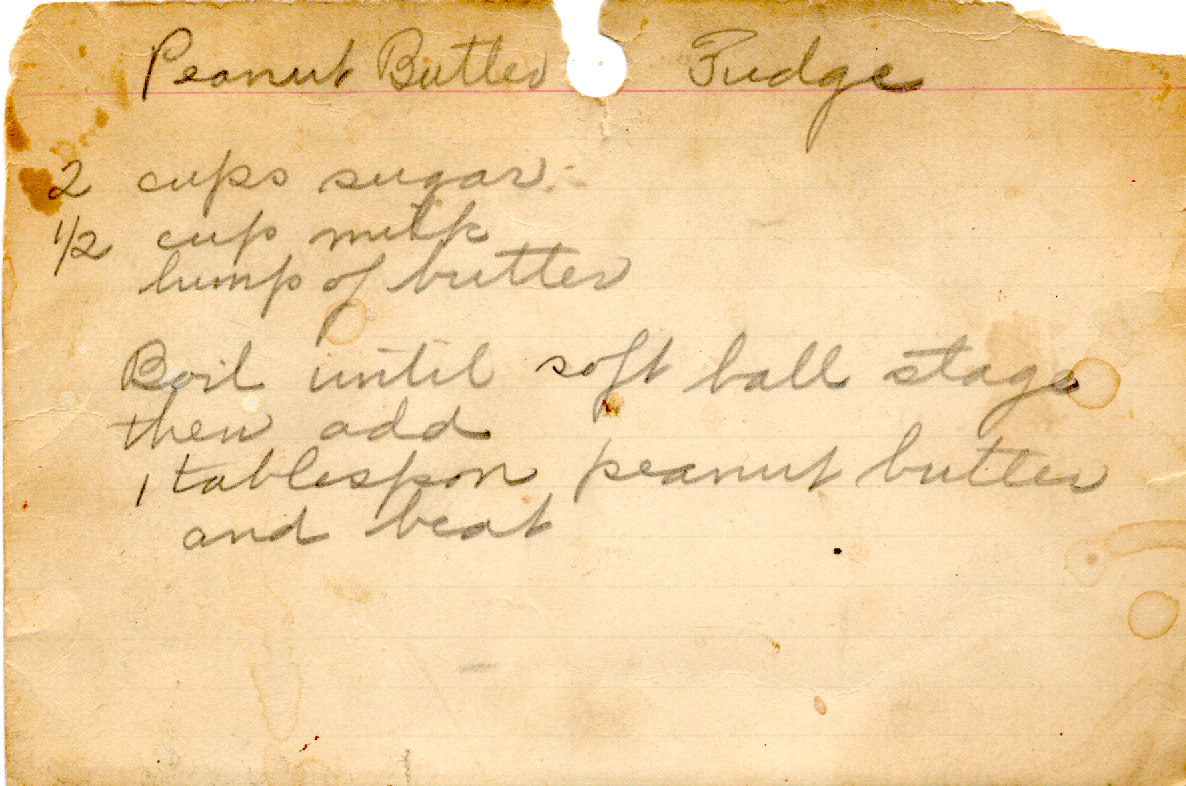 Peanut Butter Fudge
2 cups sugar
1/2 cup milk
lump of butter
Boil until soft ball stage
then add
1 tablespon peanut butter
and beat